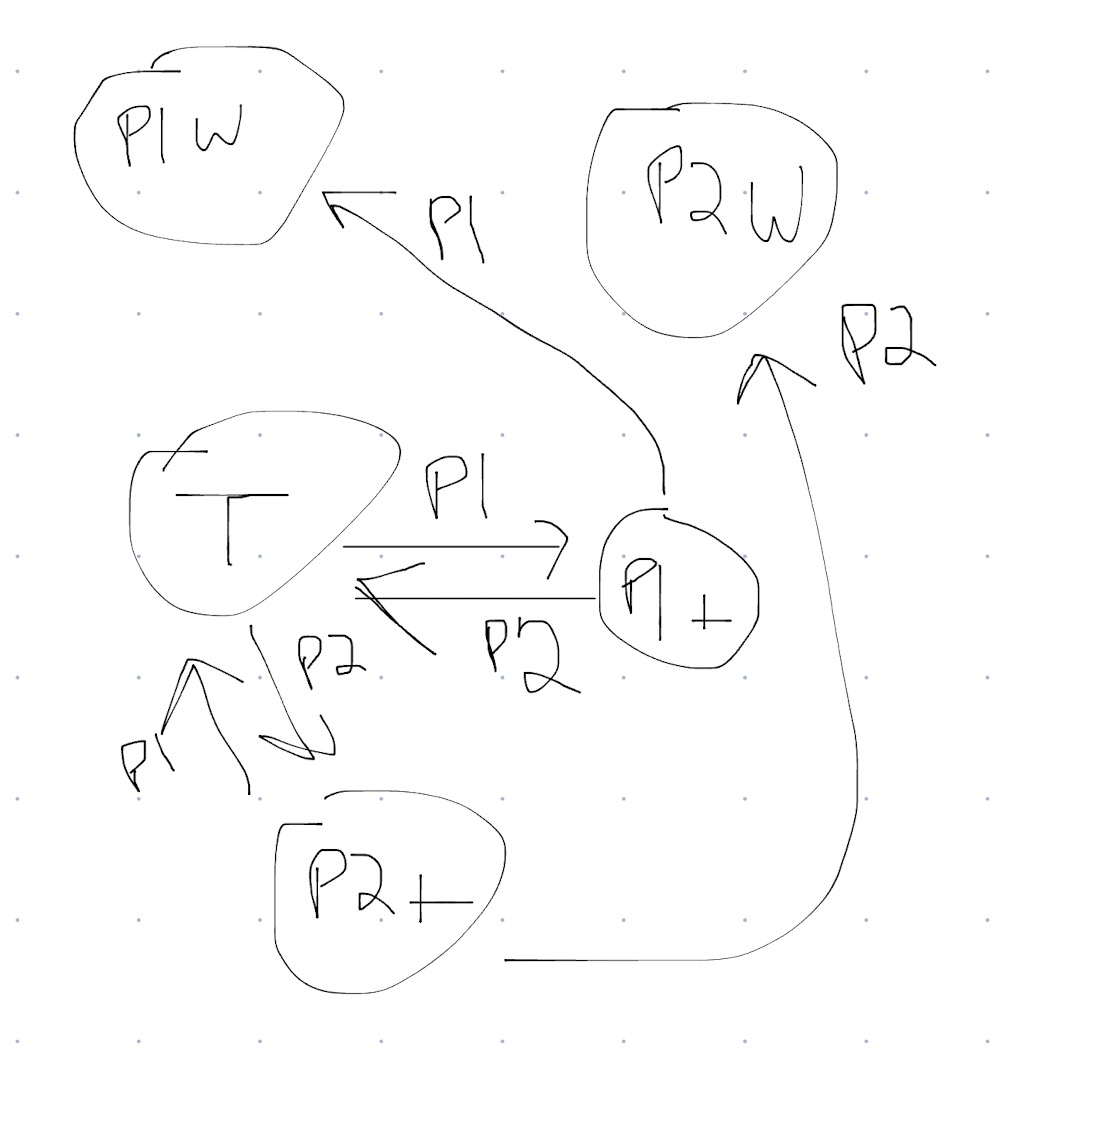 P1W
P2W
P1
P2
T
P1
P1+
P2
P2
P1
P2+